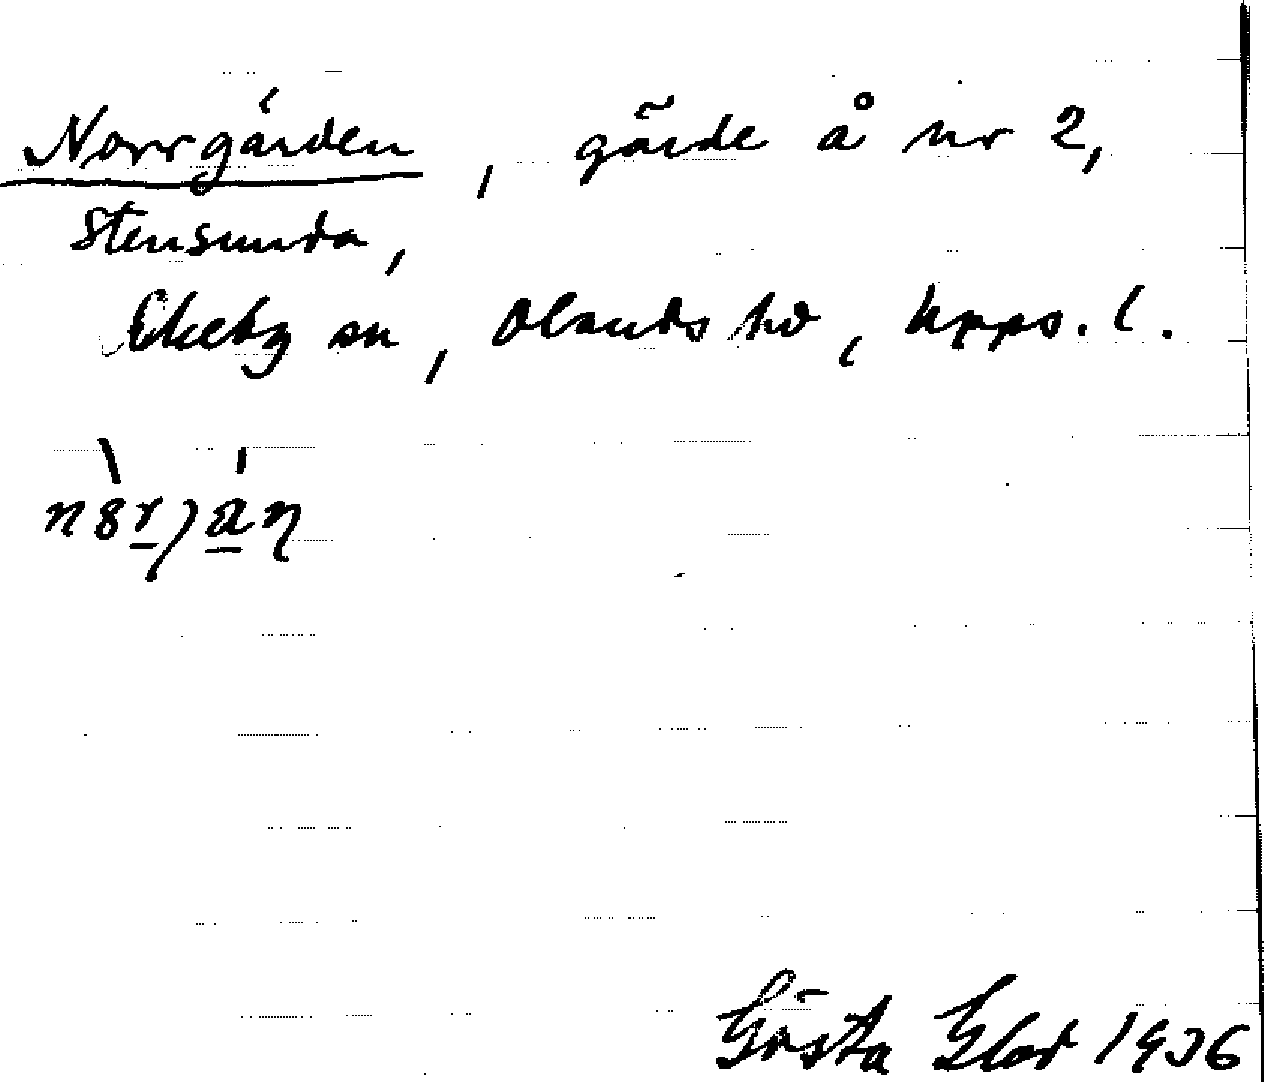 Norrgården, gärde å nr 2,
Stensunda,
Ekeby sn, Olands hd, Upps. l.
Gösta Glad 1936